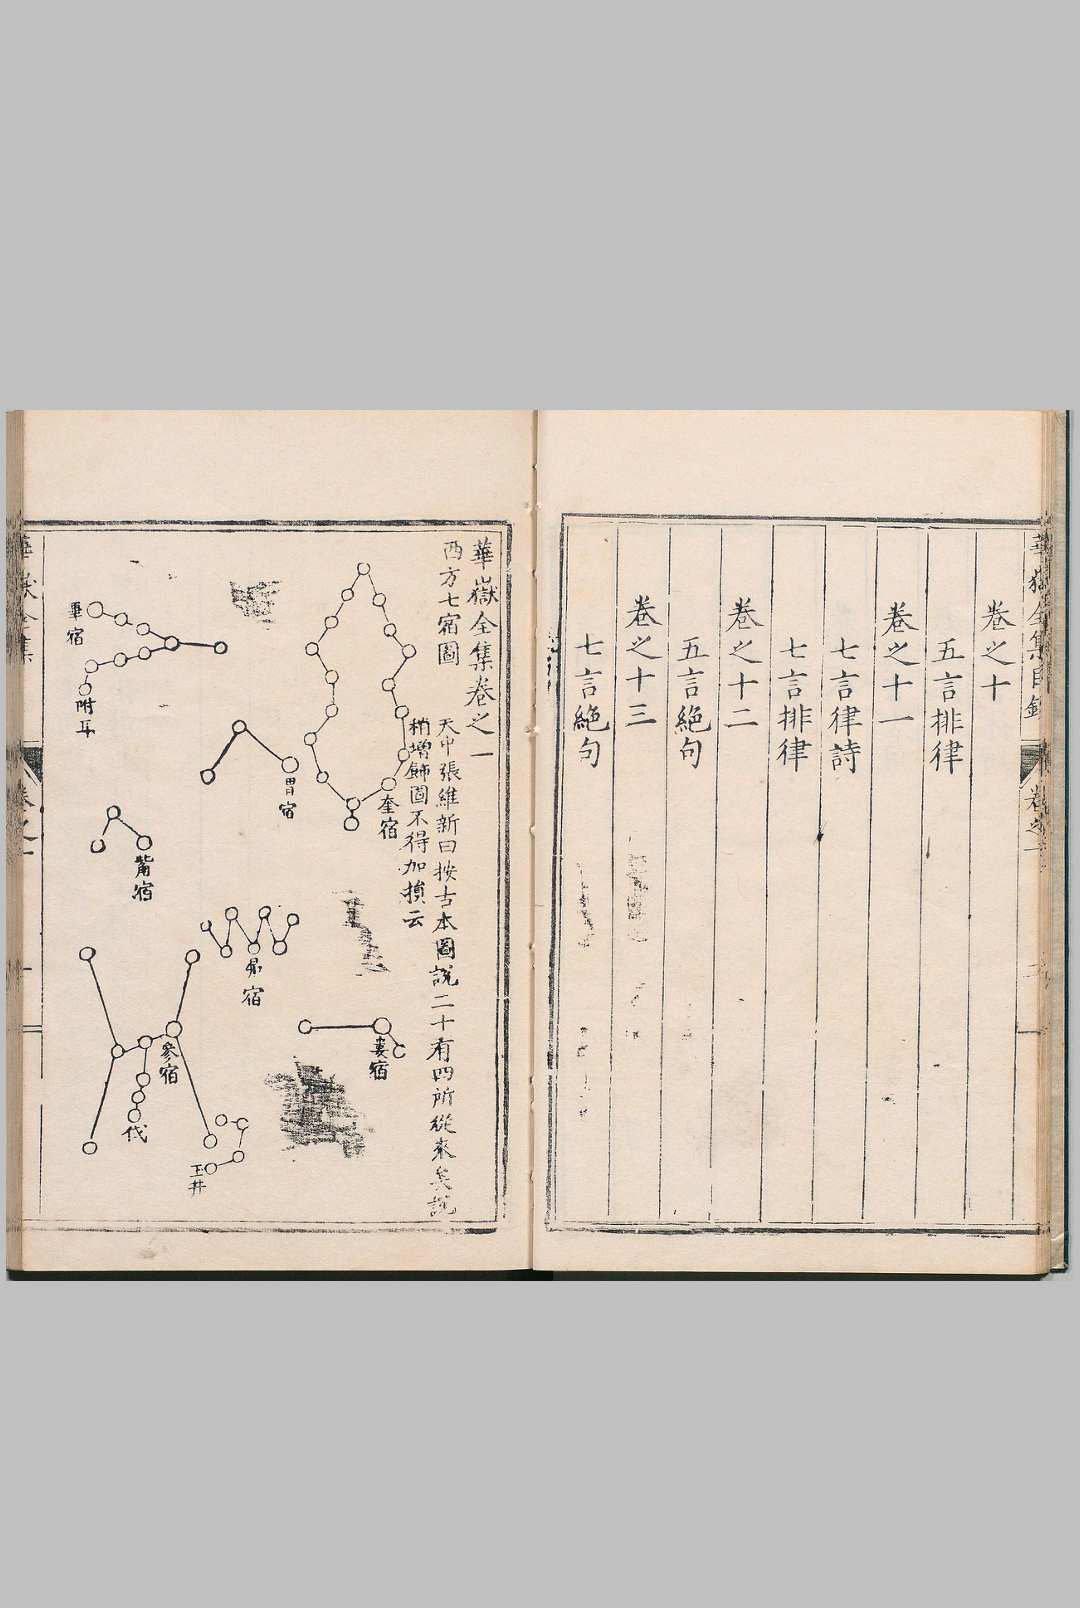 華嶽全集目錄
卷之十
五言排律
卷之十一
七言律詩
七言排律
卷之十二
五言絶句
卷之十三
七言絶句
華嶽全集卷之一
西方七宿圖
天中張維新曰按古本圖說二十有四所從來矣說
稍增飾圖不得加損云
奎宿
婁宿
胃宿
昴宿
畢宿
附耳
觜宿
參宿
伐
玉井
華嶽全集
卷之一